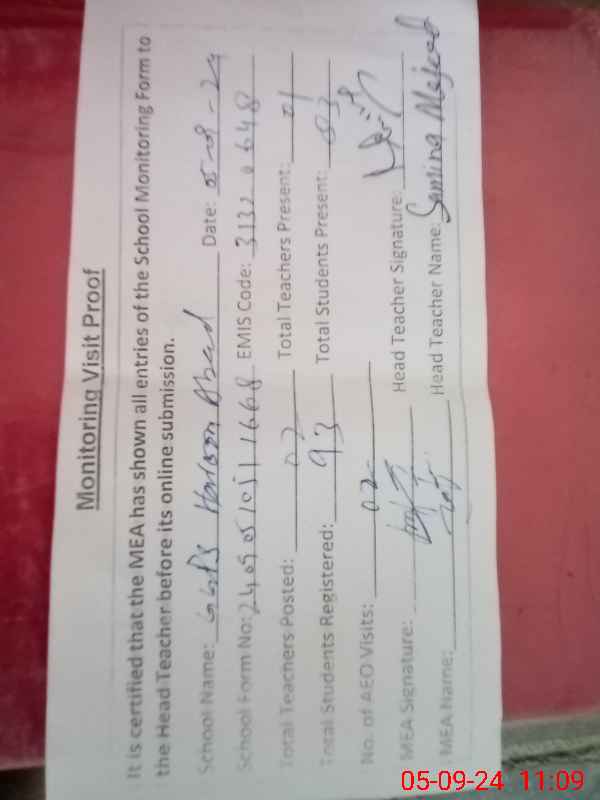 Monitoring Visit Proof
It is certified that the MEA has shown all entries of the School Monitoring Form to
the Head Teacher before its online submission.
School Name: GGPS Haroon Abad Date: 05-09-24
School Form No: 240905105111668 EMIS Code: 31320648
Total Teachers Posted: 02 Total Teachers Present: 01
Total Students Registered: 93 Total Students Present: 83
No. of AEO Visits: 02
MEA Signature: Head Teacher Signature:
MEA Name: Head Teacher Name: Samina Majeed
05-09-24 11:09